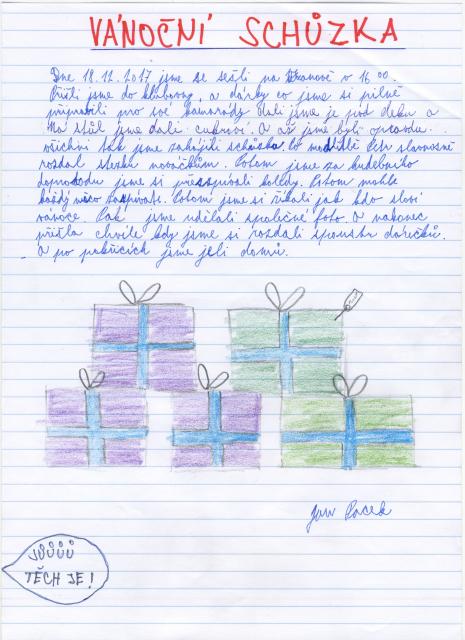 VÁNOČNÍ SCHŮZKA
Dne 18.12.2017 jsme se sešli na v 16 00.
Přišli jsme do klubovny, a dárky co jsme si pilně
připravili pro své kamarády dali jsme je pod deku a
na stůl jsme dali cukroví. A až jsme byli opravdu
všichni tak jsme zahájili schůzku. Po slavnostně
rozdal nováčkům. Potom jsme za hudebního
doprovodu jsme si přezpívali koledy. Potom mohl
každý něco zazpívat. Potom jsme si říkali jak kdo slaví
vánoce. Pak jsme udělali společné foto. A nakonec
přišla chvíle kdy jsme si rozdali spoustu dárečků.
A po jsme jeli domů.
Jan Pacek
JŮŮŮŮ
TĚCH JE!